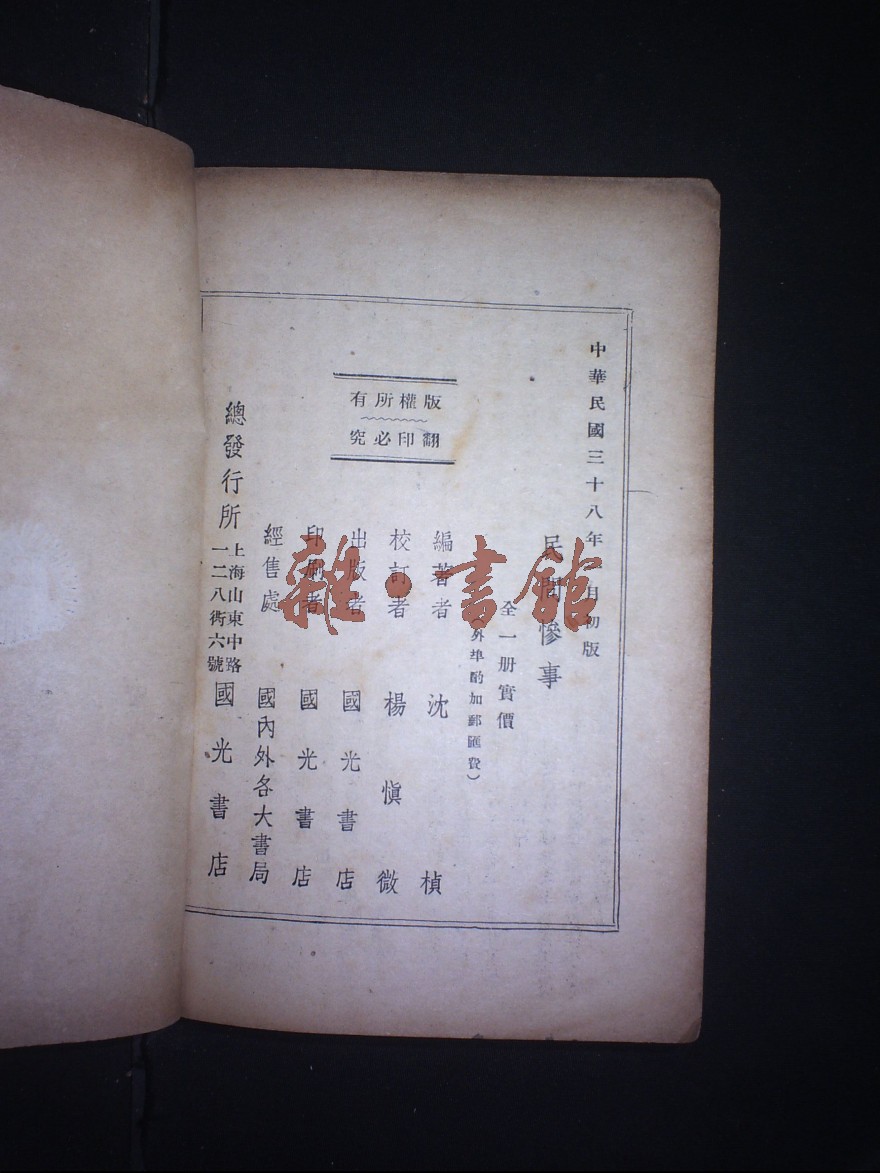 中華民國三十八年 月初版
民間慘事
全一册實價
外埠酌加郵匯費）
版權所有
翻印必究
編著者 沈楨
校訂者 楊愼微
出版者 國光書店
印刷者 國光書店
經售處 國內外各大書局
總發行所 上海山東中路
一二八衖六號 國光書店
雜·書館